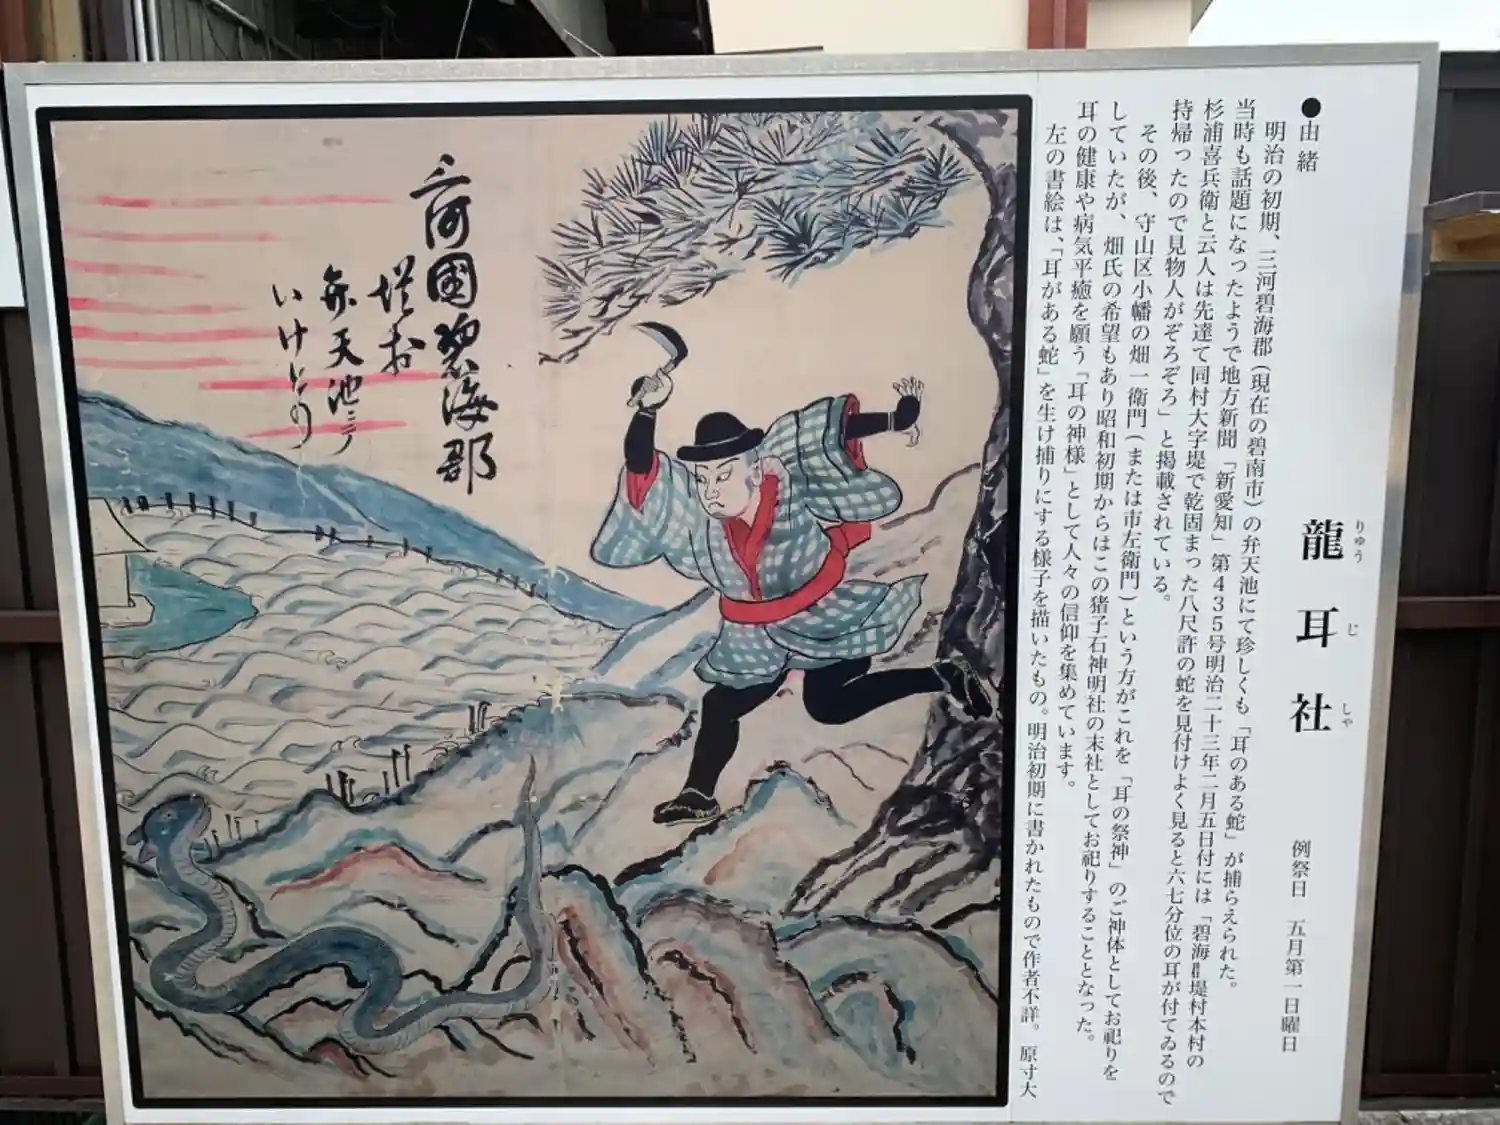 龍耳社
りゅう じ しゃ
例祭日 五月第一日曜日
●由緒
明治の初期、三河碧海郡（現在の碧南市）の弁天池にて珍しくも「耳のある蛇」が捕らえられた。
当時も話題になったようで地方新聞「新愛知」第４３５号明治二十三年二月五日付には「碧海郡堤村本村の
杉浦喜兵衛と云人は先達て同村大字堤で乾固まった八尺許の蛇を見付けよく見ると六七分位の耳が付てゐるので
持帰ったので見物人がぞろぞろ」と掲載されている。
その後、守山区小幡の畑一衛門（または市左衛門）という方がこれを「耳の祭神」のご神体としてお祀りを
していたが、畑氏の希望もあり昭和初期からはこの猪子石神明社の末社としてお祀りすることとなった。
耳の健康や病気平癒を願う「耳の神様」として人々の信仰を集めています。
左の書絵は、「耳がある蛇」を生け捕りにする様子を描いたもの。明治初期に書かれたもので作者不詳。 原寸大
三河國碧海郡
弁天池ニテ
いけどり